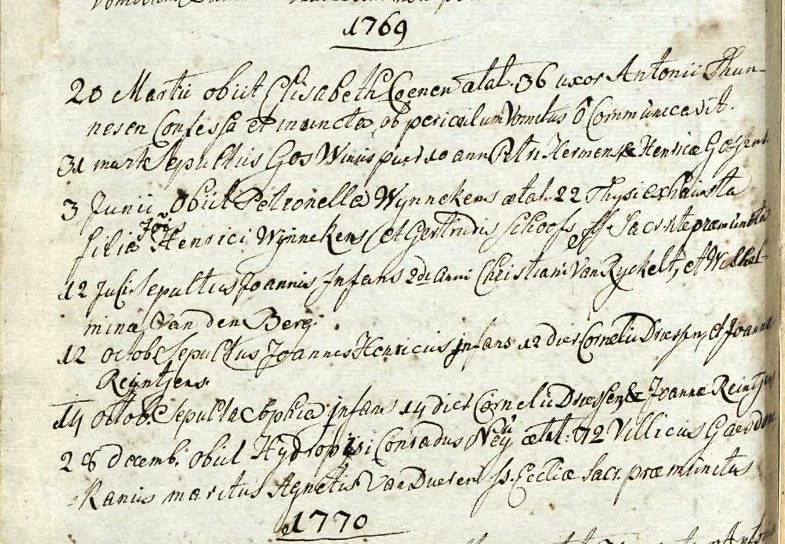 1769
20 Martii obiit Elisabeth Coenen ætat. 36 uxor Antonii Thun-
nesen Confessa et inuncta, ob periculum Vomitus ō Communicavit.
31 mart. Sepultus Goswinus puer 10 ann Petri Hermens & Henricæ
3 Junii obiit Petronella Wynnekens ætat. 22 Thysi exhausta
filia Joïs Henrici Wynnekens et Gertrudis Schoofs Sacr-te præmunita
12 Juli Sepultus Joannis Infans 2di Anni Christiani Van Ryckelt, et Wilhel-
mina Van den Berg.
12 octob. Sepultus Joannes Henricus infans 12 dier Cornelii Driessen, et Joanna
Reyntjens
14 octob. Sepulta Sophia infans 14 dier Cornelii Driessen & Joannæ Reintjens
28 decemb. obiit Hydropisi Conradus Ney ætat: 72 Villicus
Ranus maritus Agnetis Van Dueren SS. Eccliæ Sacr. præmunitus
1770